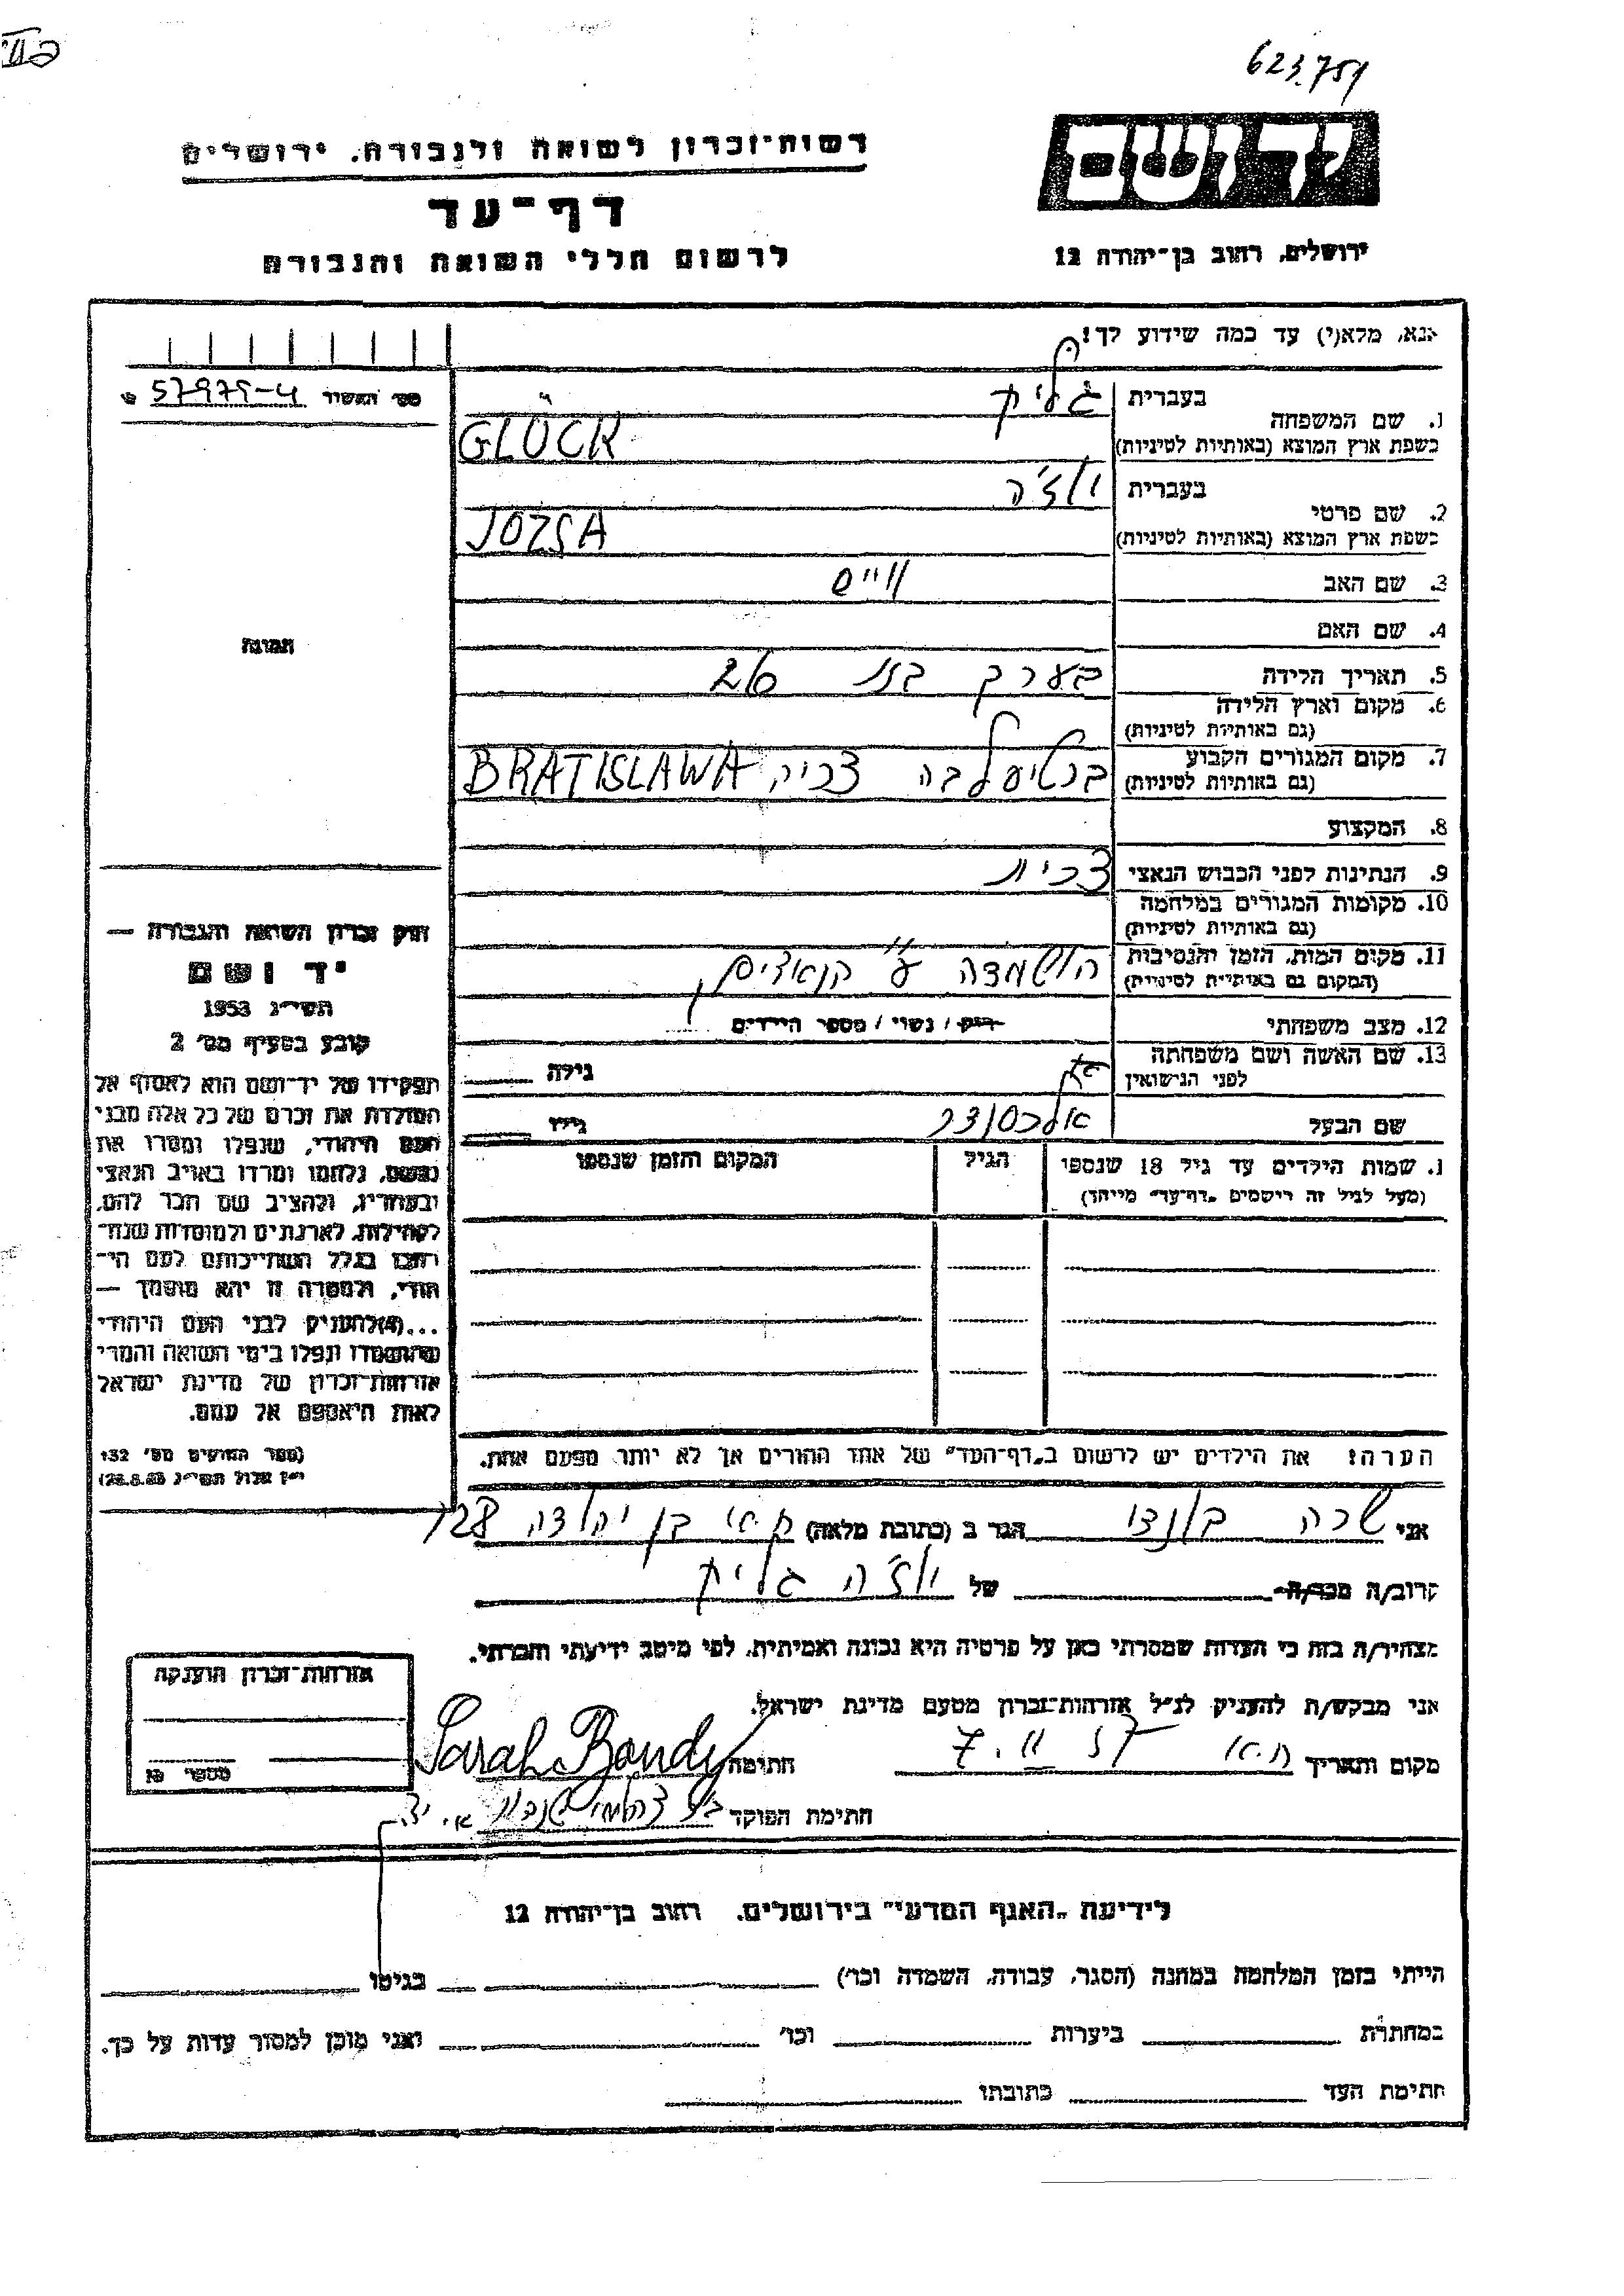 623.751
רשות־זכרון לשואה ולגבורה, ירושלים
דף־עד
לרשום חללי השואה והגבורה
יד ושם
ירושלים, רחוב בן־יהודה 12
נא, מלא(י) עד כמה שידוע לך!
מס׳ תאשור 57975-4
1. שם המשפחה
בעברית גליק
בשפת ארץ המוצא (באותיות לטיניות) GLÜCK
2. שם פרטי
בעברית יוז׳ה
בשפת ארץ המוצא (באותיות לטיניות) JOZSA
3. שם האב ווייס
4. שם האם
5. תאריך הלידה בערך בגיל 26
6. מקום וארץ הלידה
(גם באותיות לטיניות)
7. מקום המגורים הקבוע
(גם באותיות לטיניות) ברטיסלבה צכיה, BRATISLAWA
8. המקצוע
9. הנתינות לפני הכבוש הנאצי צכית
10. מקומות המגורים במלחמה
(גם באותיות לטיניות)
11. מקום המות, הזמן והנסיבות
(המקום גם באותיות לטיניות) הושמדה ע״י הנאצים
12. מצב משפחתי רוק / נשוי / מספר הילדים
13. שם האשה ושם משפחתה
לפני הנישואין גילה
שם הבעל אלכסנדר גילו
תמונה
חוק זכרון השואה והגבורה —
יד ושם
תשי״ג 1953
קובע בסעיף מס׳ 2
תפקידו של יד־ושם הוא לאסוף אל
המולדת את זכרם של כל אלה מבני
העם היהודי, שנפלו ומסרו את
נפשם, נלחמו ומרדו באויב הנאצי
ובעוזריו, ולהציב שם וזכר להם,
לקהילות, לארגונים ולמוסדות שנח־
רבו בגלל השתייכותם לעם הי־
הודי, ולמטרה זו יהא מוסמך —
...(4) להעניק לבני העם היהודי
שהושמדו ונפלו בימי השואה והמרי
אזרחות־זכרון של מדינת ישראל
לאות היאספם אל עמם.
(ספר החוקים מס׳ 132
י״ז אלול תשי״ג 28.8.53)
1. שמות הילדים עד גיל 18 שנספו
(מעל לגיל זה רישמים „דף־עד״ מיוחד)
הגיל
המקום והזמן שנספו
הערה: את הילדים יש לרשום ב„דף־העד״ של אחד ההורים אך לא יותר מפעם אחת.
אני שרה בונדי הגר ב (כתובת מלאה) ת״א בן יהודה 128
קרוב/ה מכר/ה של יוז׳ה גליק
מצהיר/ה בזה כי העדות שמסרתי כאן על פרטיה היא נכונה ואמיתית, לפי מיטב ידיעתי והכרתי.
אני מבקש/ת להעניק לנ״ל אזרחות־זכרון מטעם מדינת ישראל.
מקום ותאריך ת״א 7. חתימה Sarah Bondy
חתימת הפוקד
אזרחות־זכרון הוענקה
מספר
לידיעת „האגף המדעי״ בירושלים. רחוב בן־יהודה 12
הייתי בזמן המלחמה במחנה (הסגר, עבודה, השמדה וכו׳) בגיטו
במחתרת ביערות וכו׳ ואני מוכן למסור עדות על כך.
חתימת העד כתובתו